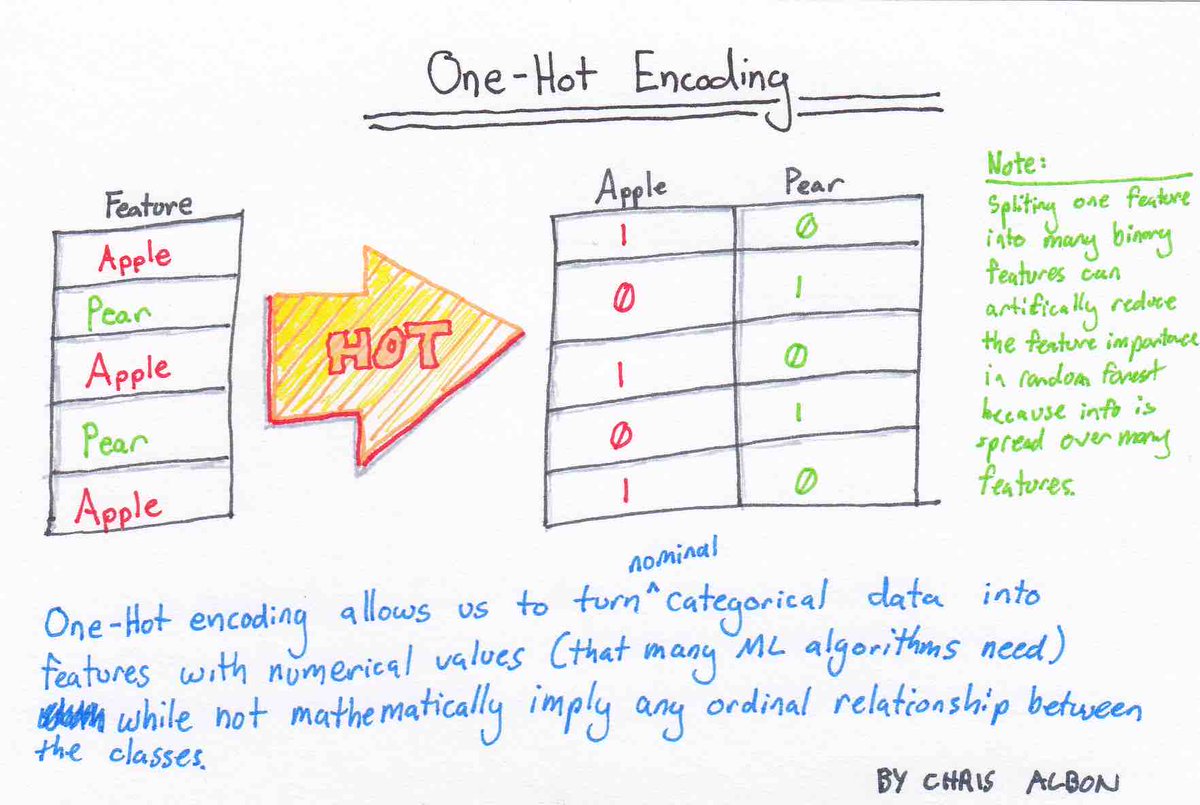 One-Hot Encoding
Feature
Apple
Pear
Apple
Pear
Apple
HOT
Apple Pear
1 0
0 1
1 0
0 1
1 0
Note:
Spliting one feature
into many binary
features can
artifically reduce
the feature importance
in random forest
because info is
spread over many
features.
nominal
One-Hot encoding allows us to turn ^ categorical data into
features with numerical values (that many ML algorithms need)
while not mathematically imply any ordinal relationship between
the classes.
BY CHRIS ALBON